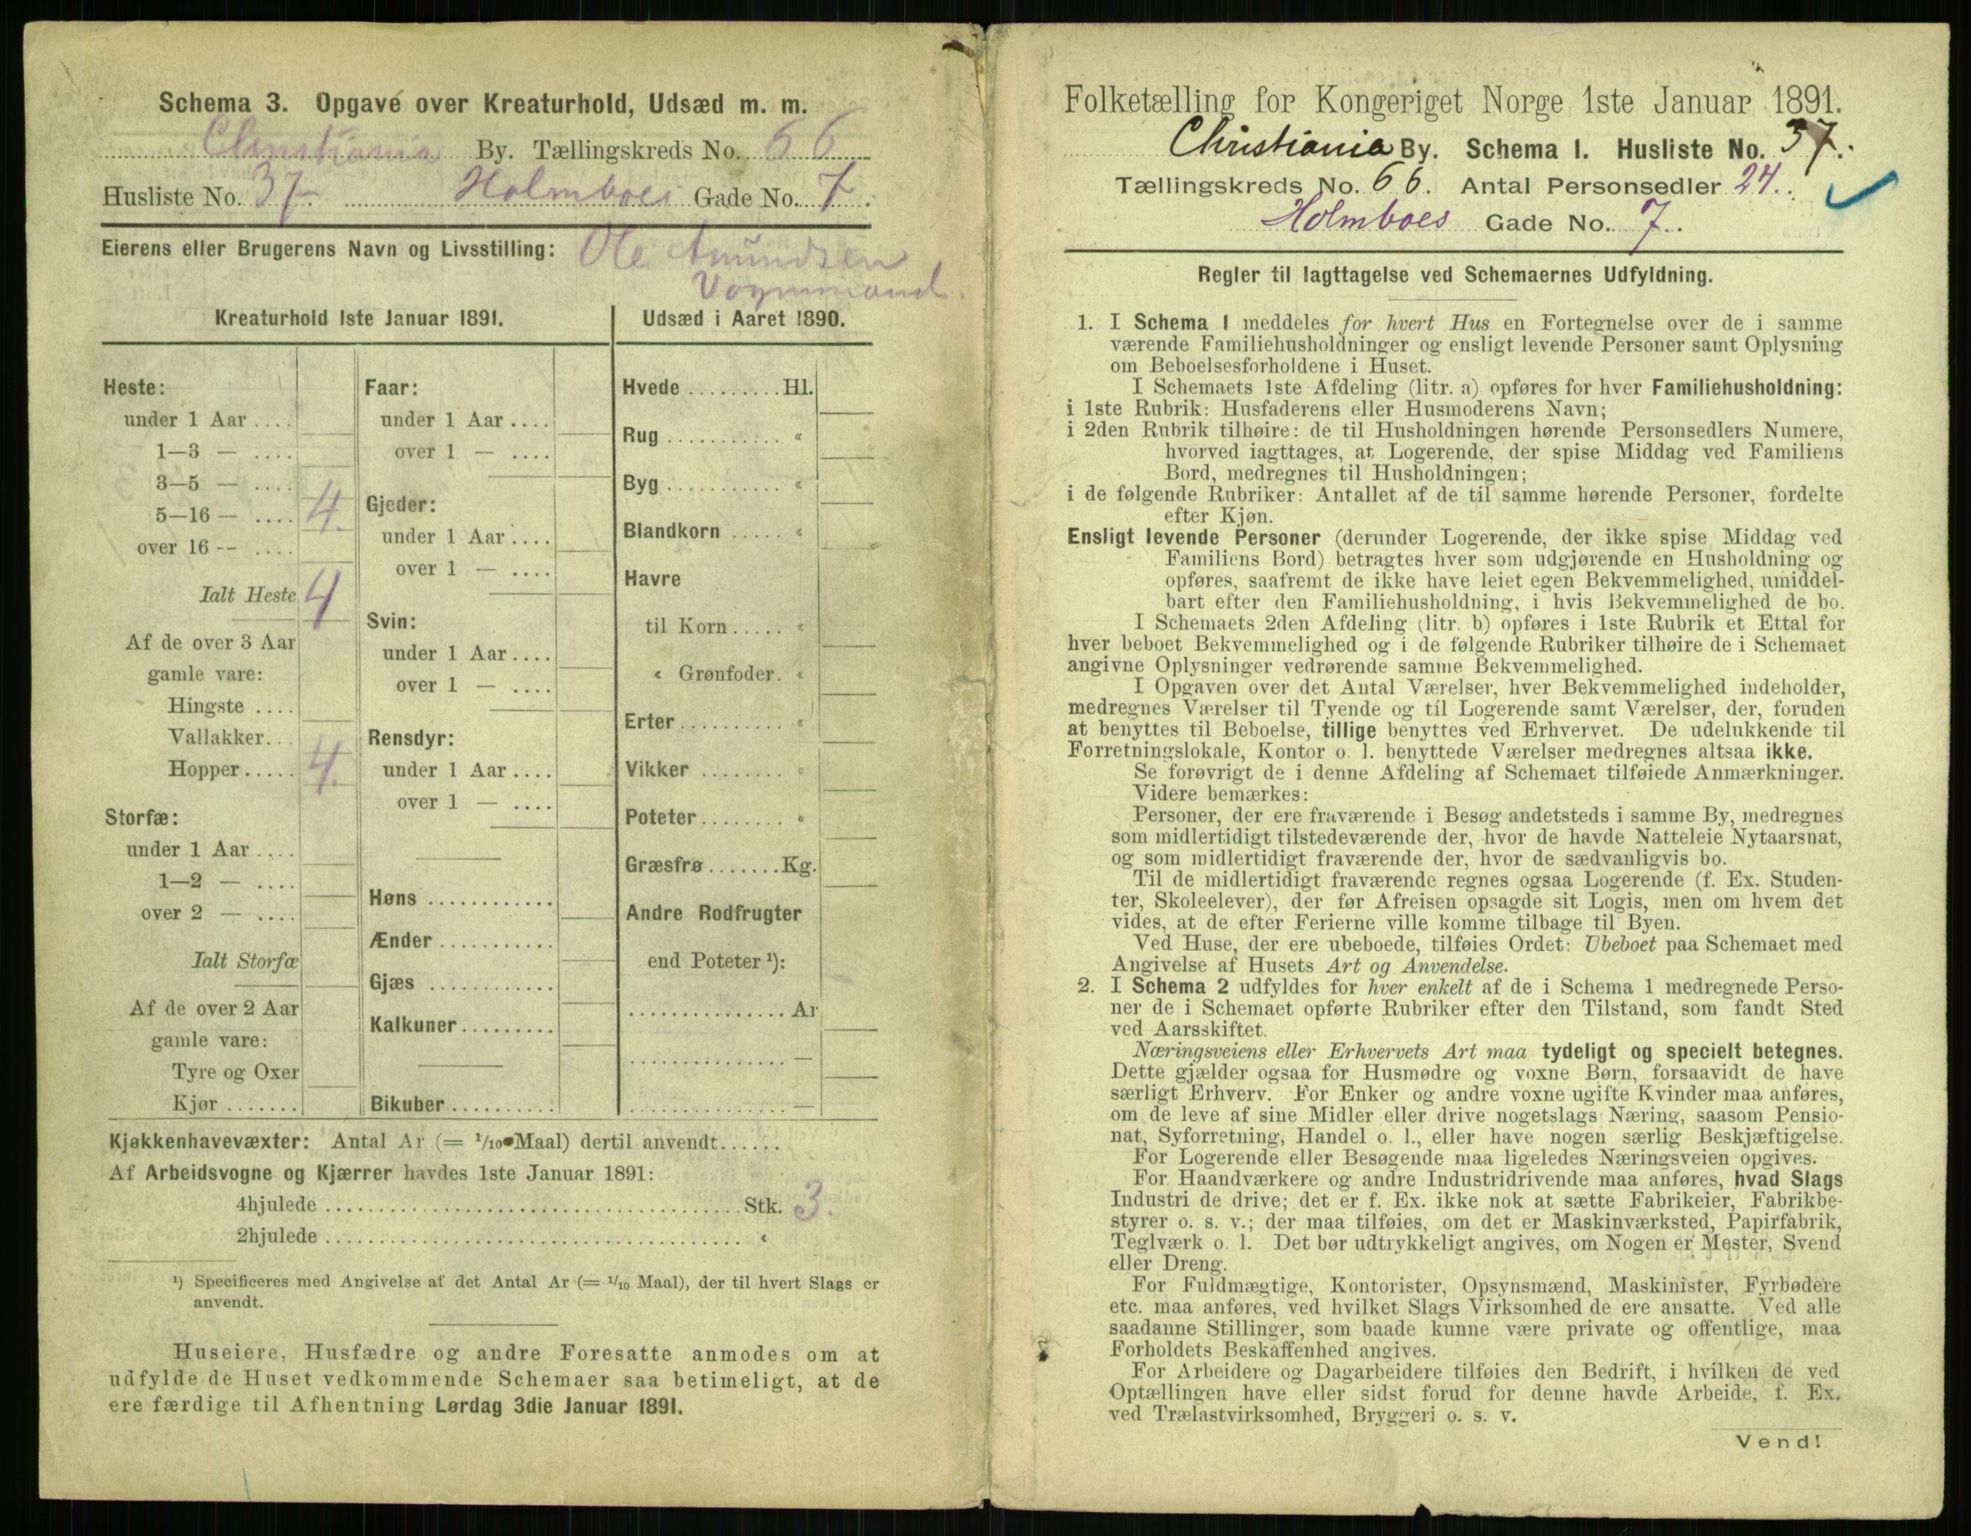 Schema 3. Opgave over Kreaturhold, Udsæd m. m.
Christiania By. Tællingskreds No. 66
Husliste No. 37. Holmboes Gade No. 7.
Eierens eller Brugerens Navn og Livsstilling: Ole Amundsen
Vognmand.
Kreaturhold 1ste Januar 1891.
Heste:
under 1 Aar ....
1—3 — ....
3—5 — ....
5—16 — .... 4.
over 16 -- ....
Ialt Heste 4
Af de over 3 Aar
gamle vare:
Hingste ....
Vallakker...
Hopper..... 4.
Storfæ:
under 1 Aar ....
1—2 — ....
over 2 — ....
Ialt Storfæ
Af de over 2 Aar
gamle vare:
Tyre og Oxer
Kjør .......
Faar:
under 1 Aar ....
over 1 — ....
Gjeder:
under 1 Aar ....
over 1 — ....
Svin:
under 1 Aar ....
over 1 — ....
Rensdyr:
under 1 Aar ....
over 1 — ....
Høns ............
Ænder ...........
Gjæs ............
Kalkuner.........
Bikuber..........
Udsæd i Aaret 1890.
Hvede .........Hl.
Rug ........... «
Byg ........... «
Blandkorn ..... «
Havre
til Korn..... «
« Grønfoder. «
Erter.......... «
Vikker ........ «
Poteter........ «
Græsfrø .......Kg.
Andre Rodfrugter
end Poteter ¹):
............... Ar
............... —
............... —
Kjøkkenhavevæxter: Antal Ar (= 1/10 Maal) dertil anvendt......
Af Arbeidsvogne og Kjærrer havdes 1ste Januar 1891:
4hjulede ....................................Stk. 3.
2hjulede .................................... «
¹) Specificeres med Angivelse af det Antal Ar (= 1/10 Maal), der til hvert Slags er
anvendt.
Huseiere, Husfædre og andre Foresatte anmodes om at
udfylde de Huset vedkommende Schemaer saa betimeligt, at de
ere færdige til Afhentning Lørdag 3die Januar 1891.
Folketælling for Kongeriget Norge 1ste Januar 1891.
Christiania By. Schema 1. Husliste No. 37.
Tællingskreds No. 66. Antal Personsedler 24.
Holmboes Gade No. 7.
Regler til Iagttagelse ved Schemaernes Udfyldning.
1. I Schema 1 meddeles for hvert Hus en Fortegnelse over de i samme
værende Familiehusholdninger og ensligt levende Personer samt Oplysning
om Beboelsesforholdene i Huset.
I Schemaets 1ste Afdeling (litr. a) opføres for hver Familiehusholdning:
i 1ste Rubrik: Husfaderens eller Husmoderens Navn;
i 2den Rubrik tilhøire: de til Husholdningen hørende Personsedlers Numere,
hvorved iagttages, at Logerende, der spise Middag ved Familiens
Bord, medregnes til Husholdningen;
i de følgende Rubriker: Antallet af de til samme hørende Personer, fordelte
efter Kjøn.
Ensligt levende Personer (derunder Logerende, der ikke spise Middag ved
Familiens Bord) betragtes hver som udgjørende en Husholdning og
opføres, saafremt de ikke have leiet egen Bekvemmelighed, umiddel-
bart efter den Familiehusholdning, i hvis Bekvemmelighed de bo.
I Schemaets 2den Afdeling (litr. b) opføres i 1ste Rubrik et Ettal for
hver beboet Bekvemmelighed og i de følgende Rubriker tilhøire de i Schemaet
angivne Oplysninger vedrørende samme Bekvemmelighed.
I Opgaven over det Antal Værelser, hver Bekvemmelighed indeholder,
medregnes Værelser til Tyende og til Logerende samt Værelser, der, foruden
at benyttes til Beboelse, tillige benyttes ved Erhvervet. De udelukkende til
Forretningslokale, Kontor o. l. benyttede Værelser medregnes altsaa ikke.
Se forøvrigt de i denne Afdeling af Schemaet tilføiede Anmærkninger.
Videre bemærkes:
Personer, der ere fraværende i Besøg andetsteds i samme By, medregnes
som midlertidigt tilstedeværende der, hvor de havde Natteleie Nytaarsnat,
og som midlertidigt fraværende der, hvor de sædvanligvis bo.
Til de midlertidigt fraværende regnes ogsaa Logerende (f. Ex. Studen-
ter, Skoleelever), der før Afreisen opsagde sit Logis, men om hvem det
vides, at de efter Ferierne ville komme tilbage til Byen.
Ved Huse, der ere ubeboede, tilføies Ordet: Ubeboet paa Schemaet med
Angivelse af Husets Art og Anvendelse.
2. I Schema 2 udfyldes for hver enkelt af de i Schema 1 medregnede Perso-
ner de i Schemaet opførte Rubriker efter den Tilstand, som fandt Sted
ved Aarsskiftet.
Næringsveiens eller Erhvervets Art maa tydeligt og specielt betegnes.
Dette gjælder ogsaa for Husmødre og voxne Børn, forsaavidt de have
særligt Erhverv. For Enker og andre voxne ugifte Kvinder maa anføres,
om de leve af sine Midler eller drive nogetslags Næring, saasom Pensio-
nat, Syforretning, Handel o. l., eller have nogen særlig Beskjæftigelse.
For Logerende eller Besøgende maa ligeledes Næringsveien opgives.
For Haandværkere og andre Industridrivende maa anføres, hvad Slags
Industri de drive; det er f. Ex. ikke nok at sætte Fabrikeier, Fabrikbe-
styrer o. s. v.; der maa tilføies, om det er Maskinværksted, Papirfabrik,
Teglværk o. l. Det bør udtrykkeligt angives, om Nogen er Mester, Svend
eller Dreng.
For Fuldmægtige, Kontorister, Opsynsmænd, Maskinister, Fyrbødere
etc. maa anføres, ved hvilket Slags Virksomhed de ere ansatte. Ved alle
saadanne Stillinger, som baade kunne være private og offentlige, maa
Forholdets Beskaffenhed angives.
For Arbeidere og Dagarbeidere tilføies den Bedrift, i hvilken de ved
Optællingen have eller sidst forud for denne havde Arbeide, f. Ex.
ved Trælastvirksomhed, Bryggeri o. s. v.
Vend!